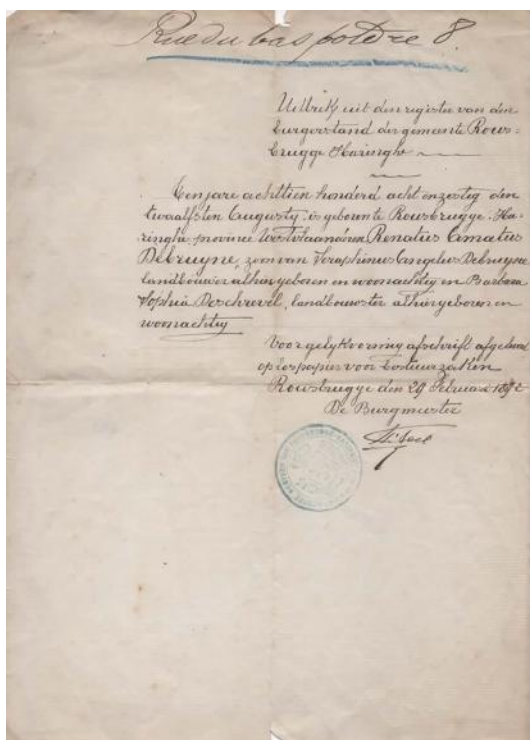 Rue du bas poldre 8.
Uittrek uit den register van den
burgerstand der gemeente Rous-
brugge Haringhe
Ten jare achttien honderd acht en zestig den
twaalfsten Augusty, is geboren te Rousbrugge-Ha-
ringhe, provincie Westvlaanderen Renatus Amatus
Debruyne, zoon van Seraphinus Angelus Debruyne
landbouwer, alhier geboren en woonachtig en Barbara
Sophia Deschrevel, landbouwster alhier geboren en
woonachtig
Voor gelykvormig afschrift afgeleverd
op los papier voor bestuurzaken
Rousbrugge den 29 Februari 1892
De Burgmeester